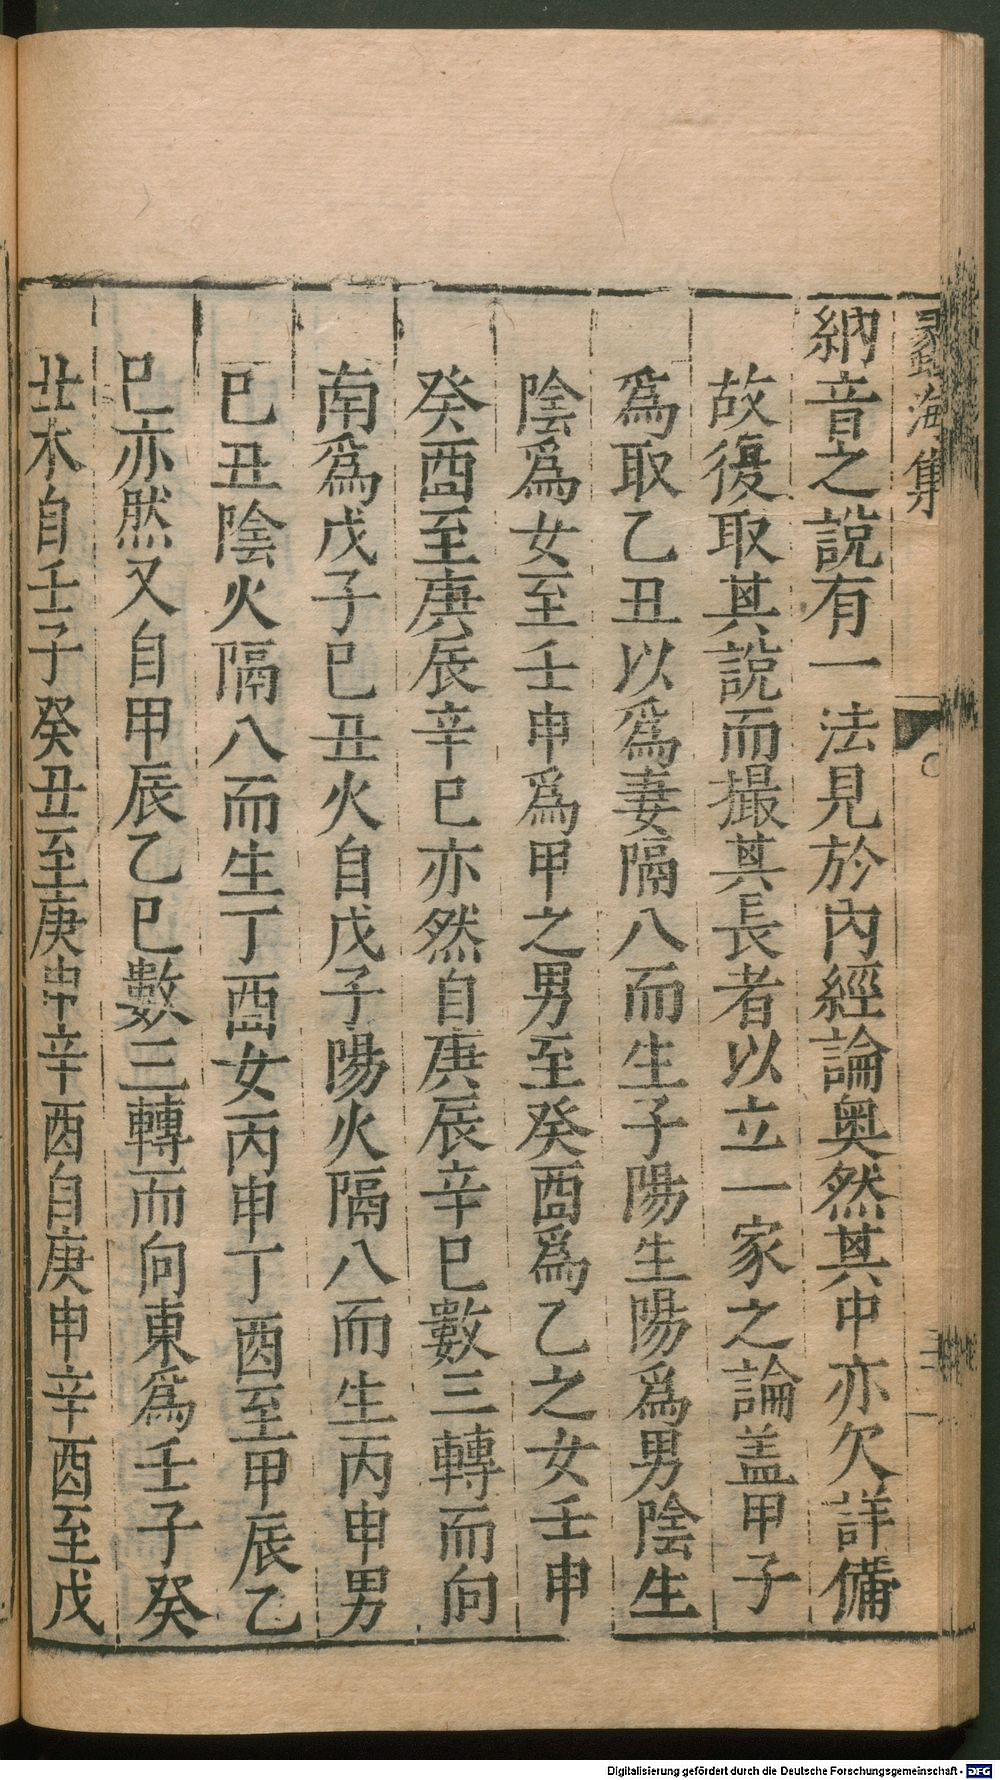 蠡海集
納音之說有一法見於內經論奧然其中亦欠詳備
故復取其說而撮其長者以立一家之論盖甲子
爲取乙丑以爲妻隔八而生子陽生陽爲男陰生
陰爲女至壬申爲甲之男至癸酉爲乙之女壬申
癸酉至庚辰辛巳亦然自庚辰辛巳數三轉而向
南爲戊子巳丑火自戊子陽火隔八而生丙申男
巳丑陰火隔八而生丁酉女丙申丁酉至甲辰乙
巳亦然又自甲辰乙巳數三轉而向東爲壬子癸
丑木自壬子癸丑至庚申辛酉自庚申辛酉至戊
Digitalisierung gefördert durch die Deutsche Forschungsgemeinschaft - DFG